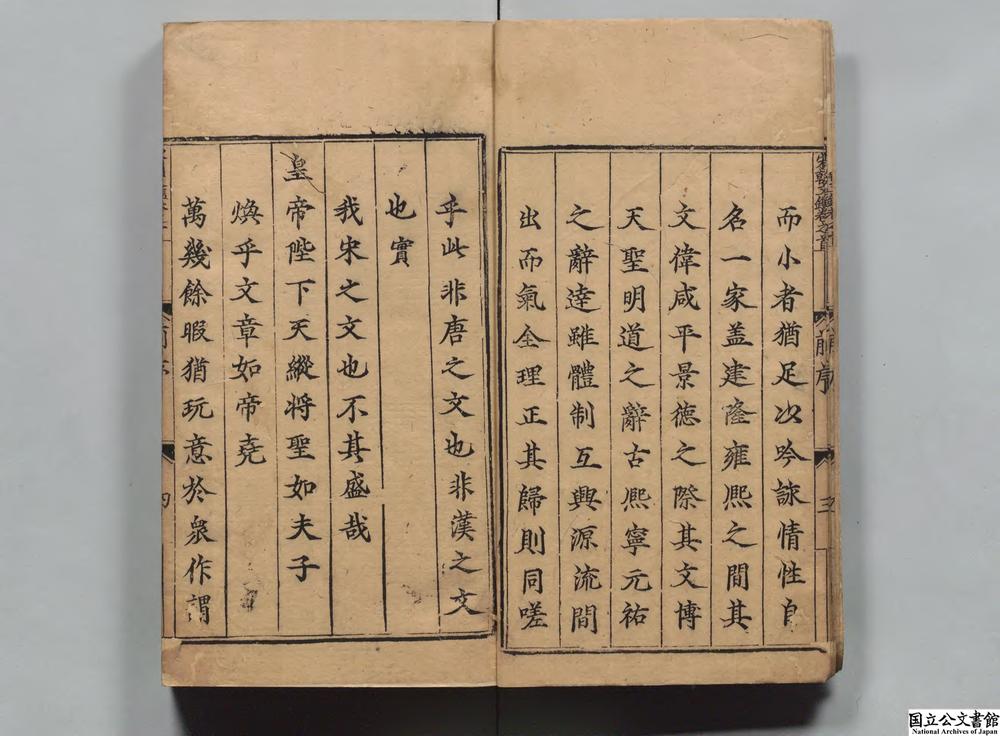 而小者猶足以吟詠情性自
名一家盖建隆雍熙之間其
文偉咸平景德之際其文博
天聖明道之辭古熙寧元祐
之辭達雖體制互興源流間
出而氣全理正其歸則同嗟
乎此非唐之文也非漢之文
也實
我宋之文也不其盛哉
皇帝陛下天縱将聖如夫子
煥乎文章如帝堯
萬幾餘暇猶玩意於衆作謂
前序
国立公文書館
National Archives of Japan